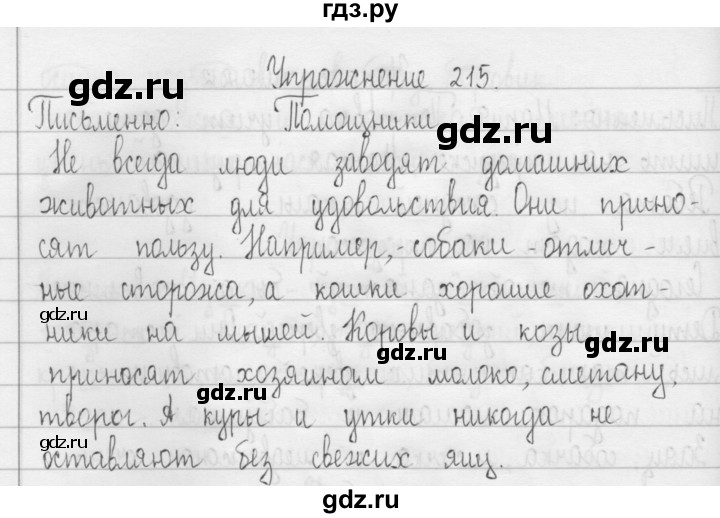 гдз.ру
Упражнение 215.
gdz.ru
Письменно: Помощники.
gdz.ru
Не всегда люди заводят домашних
животных для удовольствия. Они прино-
сят пользу. Например, - собаки - отлич-
ные сторожа, а кошки хорошие охот-
ники на мышей. Коровы и козы
gdz.ru gdz.ru gdz.ru
приносят хозяинам молоко, сметану,
gdz.ru
творог. А куры и утки никогда не
gdz.ru gdz.ru
оставляют без свежих яиц.
gdz.ru